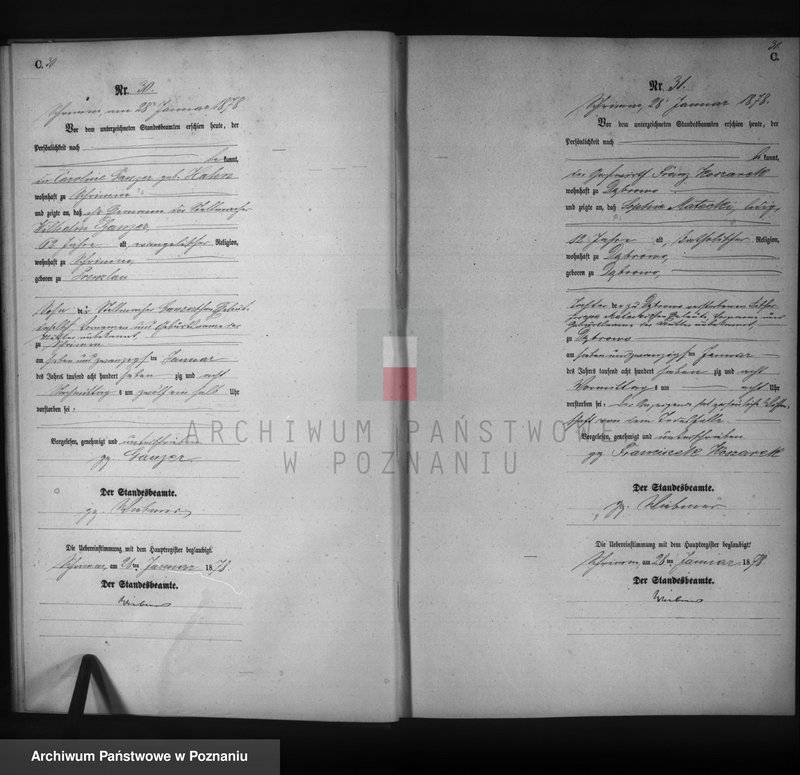 C. 30.
Nr. 30.
Schrimm, am 28 Januar 1878.
Vor dem unterzeichneten Standesbeamten erschien heute, der
Persönlichkeit nach
be kannt,
die Caroline Ganzer geb. Hahn
wohnhaft zu Schrimm
und zeigte an, daß ihr Ehemann der Stellmacher
Wilhelm Ganzer,
62 Jahre alt, evangelischer Religion,
wohnhaft zu Schrimm,
geboren zu
Sohn der Stellmacher
zu Schrimm
am sieben und zwanzigsten Januar
des Jahres tausend acht hundert sieben zig und acht
Nachmittag s um zwölf ein halb Uhr
verstorben sei.
Vorgelesen, genehmigt und unterschrieben
gz. Ganzer
Der Standesbeamte.
gz.
Die Uebereinstimmung mit dem Hauptregister beglaubigt!
Schrimm, am 28 ten Januar 1878.
Der Standesbeamte.
31.
C.
Nr. 31.
Schrimm, 28 Januar 1878.
Vor dem unterzeichneten Standesbeamten erschien heute, der
Persönlichkeit nach
be kannt,
der Gastwirth Franz Koszarek
wohnhaft zu Dąbrowo
und zeigte an, daß Sophia Matecki, ledig,
12 Jahre alt, katholischer Religion,
wohnhaft zu Dąbrowo,
geboren zu Dąbrowo,
Tochter der zu Dąbrowo verstorbenen
zu Dąbrowo
am sieben und zwanzigsten Januar
des Jahres tausend acht hundert sieben zig und acht
Vormittag s um acht Uhr
verstorben sei.
schaft von dem Todesfalle.
Vorgelesen, genehmigt und unterschrieben
gz. Franciszek Koszarek
Der Standesbeamte.
gz.
Die Uebereinstimmung mit dem Hauptregister beglaubigt!
Schrimm, am 28 ten Januar 1878.
Der Standesbeamte.
ARCHIWUM PAŃSTWOWE
W POZNANIU
Archiwum Państwowe w Poznaniu